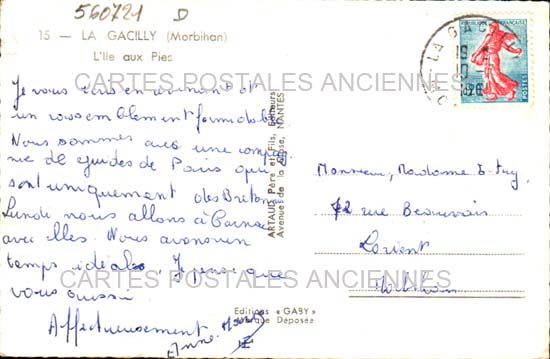 560721 D
15 — LA GACILLY (Morbihan)
L'Ile aux Pies
Je vous écris en revenant et
un rassemblement formidable
Nous sommes avec une compag
nie de guides de Paris qui
sont uniquement des Bretons
Lundi nous allons à Carnac
avec elles. Nous avons un
temps idéal. Je pense que
vous aussi
Affectueusement
Anne-Marie
ARTAUD Père et Fils, Editeurs
Avenue de la Close, NANTES
Editions « GABY »
Marque Déposée
LA GAC
REPUBLIQUE FRANÇAISE
POSTES
Monsieur, Madame
12 rue Beauvais
Lorient
Morbihan
CARTES POSTALES ANCIENNES
CARTES POSTALES ANCIENNES